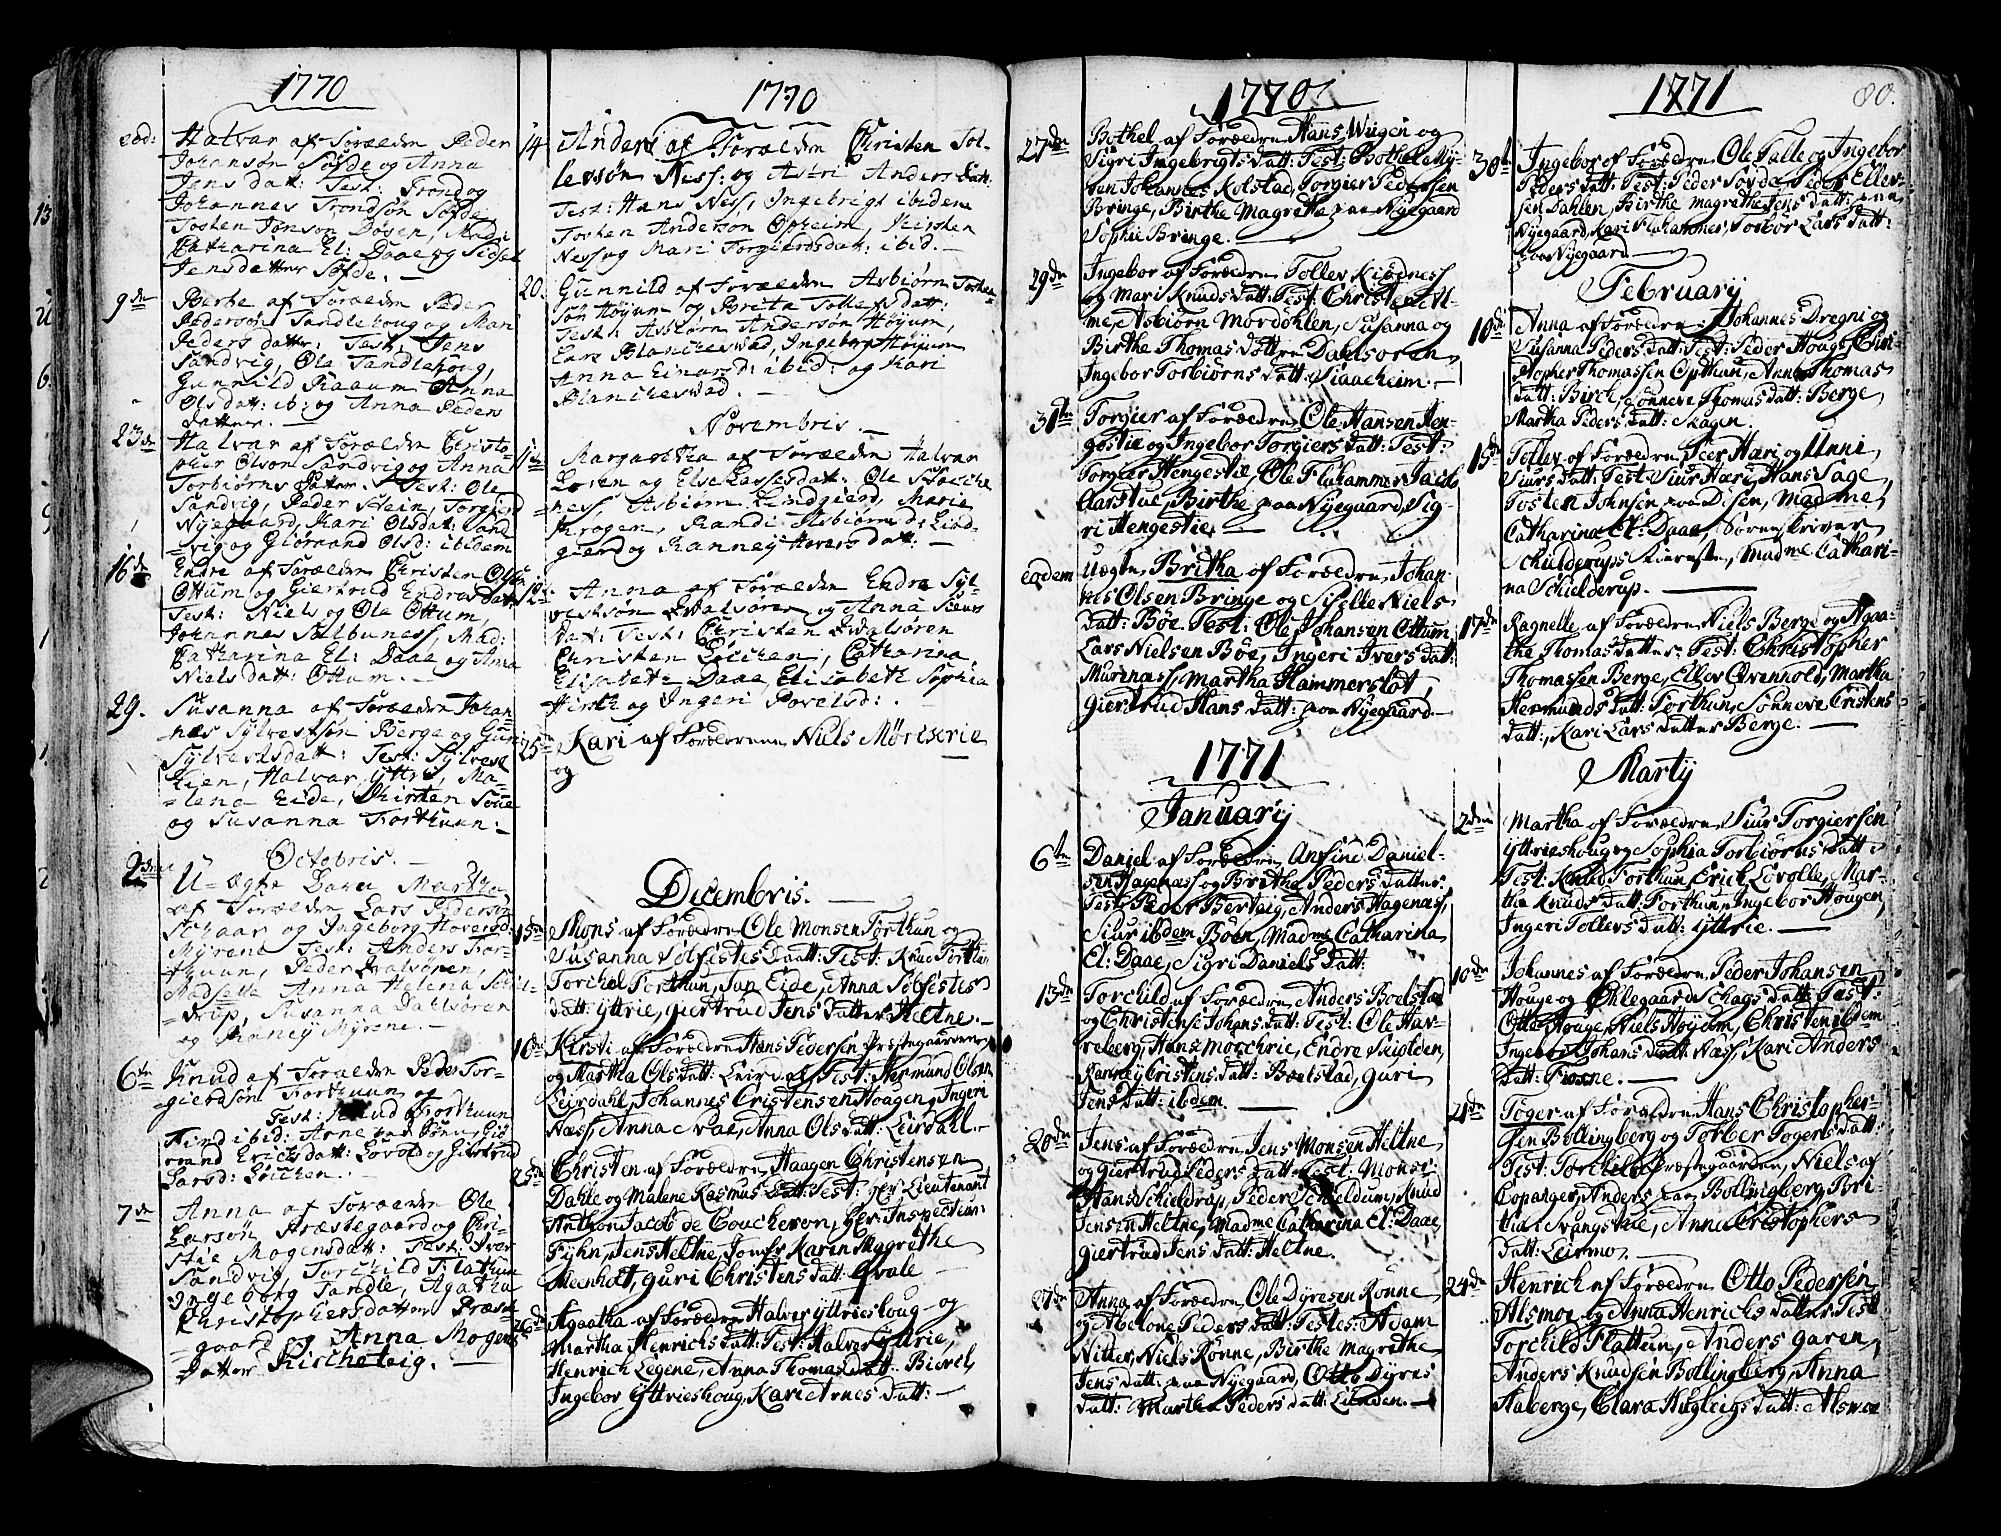 1770
eod: Halvar af Forælden Peder
Johansøn Sofde og Anna
Jens datt: Test: Trond og
Johannes Trondsøn Sofde
Tosten Jonson Døsen, Mad:
Catharina El: Daae og Sidsel
Jens datter Sofde. —
9de Berte af Forælden Peder
Pedersøn Tandlehoug og Mari
Peders datter: Test: Jens
Sandvig, Ole Tandlehoug,
Gunnild Raaum Anna
Ols datt: ib: og Anna Peders
datter. —
23de Halvar af Forælden Christo-
pher Olson Sandvig og Anna
Torbiørns datter. Test: Ole
Sandvig, Peder Stein, Torgierd
Nyegaard, Mari Olsdat: Sand
-vig og Giørand Olsd: ibidem
16de Endre af Forælden Christen Olsen
Ottum og Giertrud Endres datt:
Test: Niels og Ole Ottum,
Johannes Salbuness, Mad:
Catharina El: Daae og Anna
Niels datt: Ottum. —
29. Susanna af Forælden Johan-
nes Sylvestsøn Berge og Gun
Sylvestsdatt: Test: Sylvest
Lien, Halvar Yttri, Ma-
-lena Eide, Kirsten Soue
og Susanna Forthuun: —
Octobris. —
2den U-ægte Barn Martha
af Forælden Lars Pedersøn
Skaar og Ingeborg Hoversd:
Myrene Test: Anders For-
thuun, Peder Dvalsøren,
Madselle Anna Helena Schil-
-drup, Susanna Dahlsøren
og Ranney Myrene. —
6te Knud af Forælden Peder Tor-
gierdsøn Forthuun og
Test: Knud Forthuun
Find ibid: Arne
rand Erichsdatt: Lovold og Giertrud
Larsd: Eichen. —
7de Anna af Forælden Ole
Larsøn Præstegaard og Chri-
stie Mogensdatt: Test: Iver
Sandvig, Torchild Flathun
Ingeborg Tandle, Agatha
Christophersdatter Præste
gaard og Anna Mogens
Datter Kircheteig. —
1770
14 Anders af Forælden Christen Tol-
levsøn Ness: og Astri Anders Datt:
Test: Hans Ness, Ingebrigt ibidem
Tosten Andersøn Opheim, Kirsten
Ness og Mari Torgierdsdat: ibid. —
20. Gunnild af Forælden Asbiørn Tosten
søn Høyum og Brita Tollefsdatt:
Test: Asbiørn Andersøn Høyum,
Lars Blanchestad, Ingeborg Høyum
Anna Einarsd: ibid: og Mari
Blanchestad. —
Novembris. —
11de Margaretha af Forælden Halvar
Loven og Else Lassesdatt: Ole
ness, Asbiørn Lindgierd, Marie
Krogen, Randi Asbiørnsd: Lind-
gierd og Ranney Hoversdatt: —
12te Anna af Forælden Endre Syl-
vestsøn Dvalsøren og Anna Siurs
dat: Test: Christen Dvalsøren
Christen Eichen, Catharina
Elisabeth Daae, Elisabeth Sophia
Hirth og Ingeri Povelsd: .
25de Kari af Forældrene Niels Mørserie
og
Decembris. —
15de Mons af Forældre Ole Monsen Forthun og
Susanna Sølfestes Datt: Test: Knud Forthun
Torchel Forthun, Jan Eide, Anna Sølfestes
datt: Yttrie, Giertrud Jens Datter Heltne. —
16de Kirsti af Forældre Hans Pedersen Præstegaarden
og Martha Ols Datt: Leirdal Test: Hermund Olsen
Leirdahl, Johannes Cristensen Hoagen, Ingeri
Næss, Anna Næs, Anna Ols Datt: Leirdahl. —
25de Christen af Forældre Haagen Christensen
Dahle og Malene Rasmus Datt: Test: Her Lieutenant
Anthon Jacob de Coucheron, Her Inspecteur:
Fyhn, Jens Heltne, Jomfr Karen Magrethe
Meenholt, Guri Christens Datt: Qvale
26de Agatha af Forældre Halver Yttrieshoug og
Martha Henrichs Datt: Test: Halver Yttrie,
Henrich Legene, Anna Thomas Datt: Bierck,
Ingebor Yttrieshoug, Kari Arnes Datt: —
1770
27de Bothel af Forældre Hans Wiigen og
Sigri Ingebrigts Datt: Test: Bothele Ny-
Jan Johannes Kolstad, Torgier Pedersen
Bringe, Birthe Magrethe paa Nyegaard
Sophie Bringe. —
29de Ingebor af Forældre Tollev Kiødness
og Mari Knuds Datt: Test: Christen
me, Asbiørn Mordohlen, Susanna og
Birthe Thomas døttre Dahlsøren
Ingebor Torbiørns Datt: Siaaheim. —
31te Torgier af Forældre Ole Hansen Hen-
gestie og Ingebor Torgiers Datt: Test:
Torgier Hengestie, Ole Fluhammer Jacob
Aarstue, Birthe paa Nyegaard, Sig-
ri Hengestie —
eodem Uægte Britha af Forældre Johan-
nes Olsen Bringe og Siselle Niels
Datt: Böe Test: Ole Johansen Ottum
Lars Nielsen Böe, Ingeri Ivers datt:
Murenass, Martha Hammerslot,
Giertrud Hans Datt: paa Nyegaard —
1771
January
6te Daniel af Forældre Anfind Daniel-
sen Hagenass og Brithe Peders Datter
Test: Peder Berteig, Anders Hagenas,
Siur ibdem Boen, Madme Catharina
El: Daae, Sigri Daniels Datt:
13de Torchild af Forældre Anders Boelstad
og Christense Johans Datt: Test: Ole Har-
reberg, Hans Morchrie, Endre Skiolden,
Ranney Cristens Datt: Boelstad, Guri
Jens Datt: ibdem. —
20de Jens af Forældre Jens Monsen Heltne
og Giertrud Peders Datt: Test: Monsr
Hans Schieldrop, Peder Schieldrup, Knud
Jensen Heltne, Madme Catharina El: Daae,
Giertrud Jens Datt: Heltne.
27de Anna af Forældre Ole Dyresen Rønne
og Abelone Peders Datt: Testes: Adam
Nitter, Niels Rønne, Birthe Magrethe
Jens Datt: paa Nyegaard, Otto Dyres
Datt: Martha Peders Datt: Lienden. —
1771
80.
30te Ingebor af Forældre Ole Talle og Ingebor
Peders Datt: Test: Peder Søvde, Peder Ellev-
sen Dahlen, Birthe Magrethe Jens Datt: paa
Nyegaard, Kari Fluhammer, Torbor Lars Datt:
paa Nyegaard —
February
10de Anna af Forældre Johannes Dregni og
Susanna Peders Datt: Test: Peder Houg, Chri-
stopher Thomassen Opthun, Anna Thomas
Datt: Birch, Sønneve Thomas Datt: Berge,
Martha Peders Datt: Skagen.
15de Tollev af Forældre Peer Hari og Unni
Siurs Datt: Test: Siur Hæri, Hans Sage
Tosten Johnsen paa Disen, Madme
Catharina El: Daae, Sorenskriver
Schilderups Kiereste, Madme Cathari-
na Schielderup. —
17de Ragnelle af Forældre Niels Berge og Aga-
the Thomas datter: Test: Christopher
Thomassen Berge, Ellev Qvenhold, Martha
Hermunds Datt: Forthun, Sønneve Cristens
Datt:, Kari Lars Datter Berge. —
Marty
2den Martha af Forældre Siur Torgiersen
Yttrieshoug og Sophia Torbiørns Datt:
Test: Knud Forthun, Erick Lovolle, Mar-
the Knuds Datt: Forthun, Ingebor Hougen,
Ingeri Tollevs Datt: Yttrie. —
10de Johannes af Forældre Peder Johansen
Houge og Øhlegaard Schags Datt: Test:
Otto Houge, Niels Høyum, Christen ibdem
Ingebor Johans Datt: Næss, Kari Anders
Datt: Fiøsne. —
21de Toger af Forældre Hans Christopher-
sen Bollingberg og Torber Togers Datt:
Test: Torchild Præstegaarden, Niels af
Copanger, Anders paa Bollingberg, Bri-
tha Svangstue, Anna Cristophers
Datt: Leirmo. —
24de Henrich af Forældre Otto Pedersen
Alsmoe og Anna Henrichs Datter Test
Torchild Flattun, Anders Garen,
Anders Knudsen Bollingberg, Anna
Haberge, Clara Hugleigs datt: Alsmoe